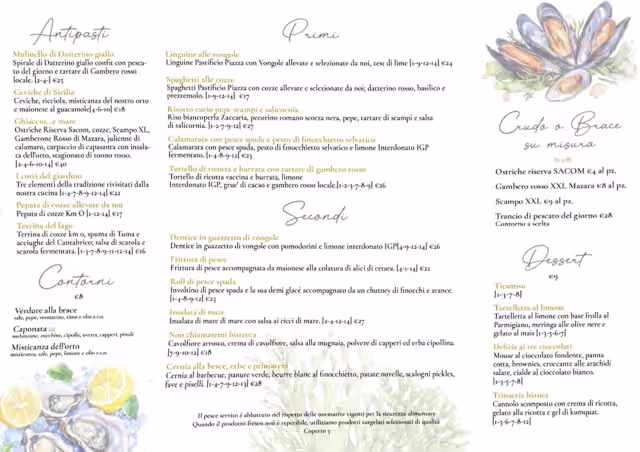 Antipasti
Mulinello di Datterino giallo
Spirale di Datterino giallo confit con pesca-
to del giorno e tartare di Gambero rosso
locale. [2-4-] €25
Ceviche di Sicilia
Ceviche, ricciola, misticanza del nostro orto
e maionese al guacamole[4-6-10] €18
Ghiaccio...e mare
Ostriche Riserva Sacom, cozze, Scampo XL,
Gamberone Rosso di Mazara, julienne di
calamaro, carpaccio di capasanta con insala-
ta dell'orto, stagionato di tonno rosso.
[2-4-6-10-14] €40
I colori del giardino
Tre elementi della tradizione rivisitati dalla
nostra cucina [1-4-7-8-9-12-14] €22
Pepata di cozze allevate da noi
Pepata di cozze Km O [1-12-14] €17
Terrina del lago
Terrina di cozze km 0, spuma di Tuma e
acciughe del Cantabrico; salsa di scarola e
scarola fermentata. [1-3-7-8-9-11-12-14] €16
Contorni
€8
Verdure alla brace
sale, pepe, rosmarino, timo e olio e.v.o.
Caponata
melanzane, zucchine, cipolla, uvetta, capperi, pinoli
Misticanza dell'orto
misticanza, sale, pepe, limone e olio e.v.o.
Primi
Linguine alle vongole
Linguine Pastificio Piazza con Vongole allevate e selezionate da noi, zest di lime [1-9-12-14] €24
Spaghetti alle cozze
Spaghetti Pastificio Piazza con cozze allevate e selezionate da noi; datterino rosso, basilico e
prezzemolo. [1-9-12-14] €17
Risotto cacio pepe scampi e salicornia
Riso biancoperla Zaccaria, pecorino romano scorza nera, pepe, tartare di scampi e salsa
di salicornia. [1-2-7-9-12] €27
Calamarata con pesce spada e pesto di finocchietto selvatico
Calamarata con pesce spada, pesto di finocchietto selvatico e limone Interdonato IGP
fermentato. [1-4-8-9-12[ €23
Tortello di ricotta e burrata con tartare di gambero rosso
Tortello di ricotta vaccina e burrata, limone
Interdonato IGP, grue' di cacao e gambero rosso locale.[1-2-3-7-8-9] €26
Secondi
Dentice in guazzetto di vongole
Dentice in guazzetto di vongole con pomodorini e limone interdonato IGP[4-9-12-14] €26
Frittura di pesce
Frittura di pesce accompagnata da maionese alla colatura di alici di cetara. [4-1-14] €22
Roll di pesce spada
Involtino di pesce spada e la sua demi glacé accompagnato da un chutney di finocchi e arance.
[1-4-8-9-12] €23
Insalata di mare
Insalata di mare di mare con salsa ai ricci di mare. [2-4-12-14] €27
Non chiamatemi bistecca
Cavolfiore arrosto, crema di cavolfiore, salsa alla mugnaia, polvere di capperi ed erba cipollina.
[7-9-10-12] €18
Cernia alla brace, erbe e primavera
Cernia al barbecue, panure verde, beurre blanc al finocchietto, patate novelle, scalogni pickles,
fave e piselli. [1-4-7-9-12-13] €28
Il pesce servito è abbattuto nel rispetto delle normative vigenti per la sicurezza alimentare
Quando il prodotto fresco non è reperibile, utilizziamo prodotti surgelati selezionati di qualità
Coperto 3
Crudo o Brace
su misura
Ostriche riserva SACOM €4 al pz.
Gambero rosso XXL Mazara €8 al pz.
Scampo XXL €9 al pz.
Trancio di pescato del giorno €28
Contorno a scelta
Dessert
€9
Tiramisu
[1-3-7-8]
Tartelletta al limone
Tartelletta al limone con base frolla al
Parmigiano, meringa alle olive nere e
gelato al mais [1-3-5-6-7]
Delizia ai tre cioccolati
Mouse al cioccolato fondente, panna
cotta, brownies, croccante alle arachidi
salate, cialde al cioccolato bianco.
[1-3-5-7-8]
Trinacria bianca
Cannolo scomposto con crema di ricotta,
gelato alla ricotta e gel di kumquat.
[1-5-6-7-8-12]